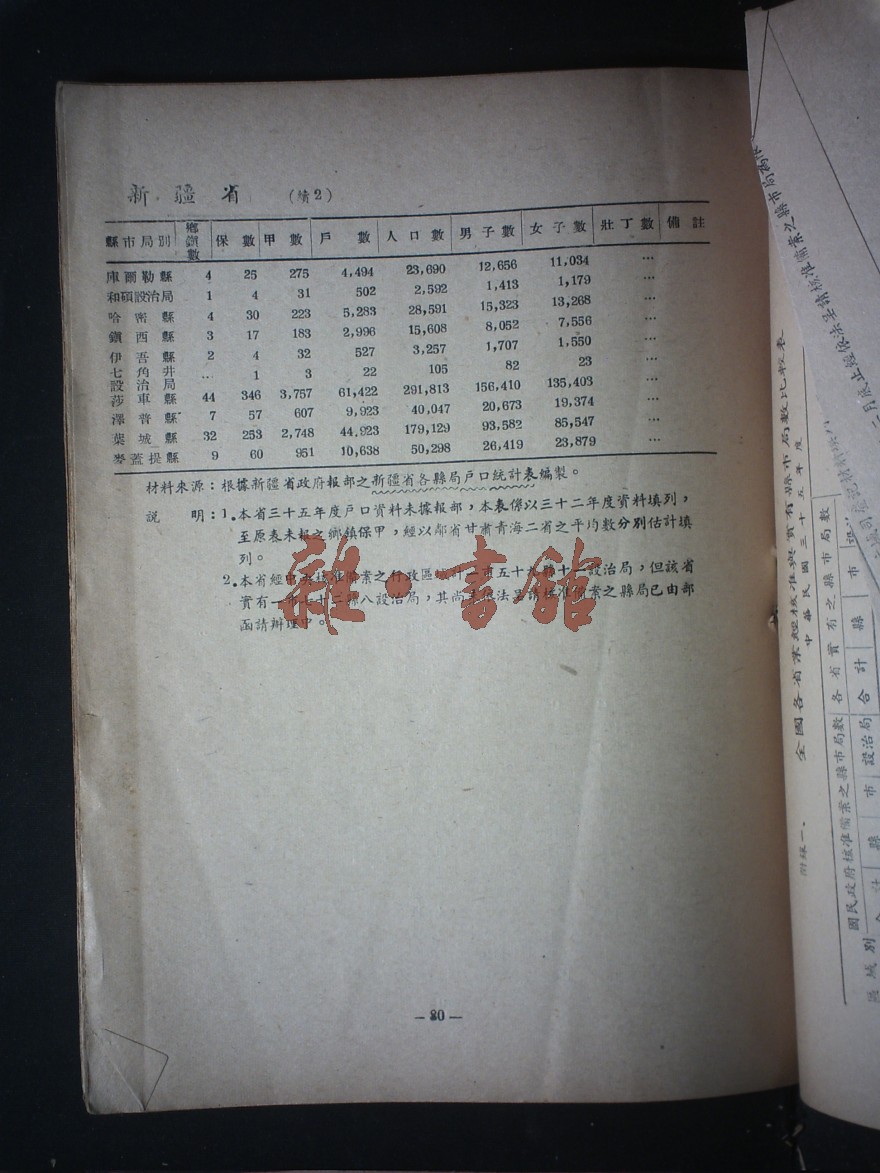 新疆省 (續2)
縣市局別 鄉鎮數 保數 甲數 戶數 人口數 男子數 女子數 壯丁數 備註
庫爾勒縣 4 25 275 4,494 23,690 12,656 11,034 …
和碩設治局 1 4 31 502 2,592 1,413 1,179 …
哈密縣 4 30 223 5,283 28,591 15,323 13,268 …
鎭西縣 3 17 183 2,996 15,608 8,052 7,556 …
伊吾縣 2 4 32 527 3,257 1,707 1,550 …
七角井設治局 … 1 3 22 105 82 23 …
莎車縣 44 346 3,757 61,422 291,813 156,410 135,403 …
澤普縣 7 57 607 9,923 40,047 20,673 19,374 …
葉城縣 32 253 2,748 44,923 179,129 93,582 85,547 …
麥蓋提縣 9 60 951 10,638 50,298 26,419 23,879 …
材料來源：根據新疆省政府報部之新疆省各縣局戶口統計表編製。
說明：1.本省三十五年度戶口資料未據報部，本表係以三十二年度資料填列，
至原表未報之鄉鎮保甲，經以鄰省甘肅青海二省之平均數分別估計填
列。
2.本省經中央核准備案之行政區域計一市五十九縣十一設治局，但該省
實有一市七十三縣八設治局，其尚未依法呈請核准備案之縣局已由部
函請辦理中。
雜·書館
—80—
附錄一、 全國各省業經核准與實有縣市局數比較表
中華民國三十五年度
區域別 國民政府核准備案之縣市局數 各省實有之縣市局數
合計 縣 市 設治局 合計 縣 市